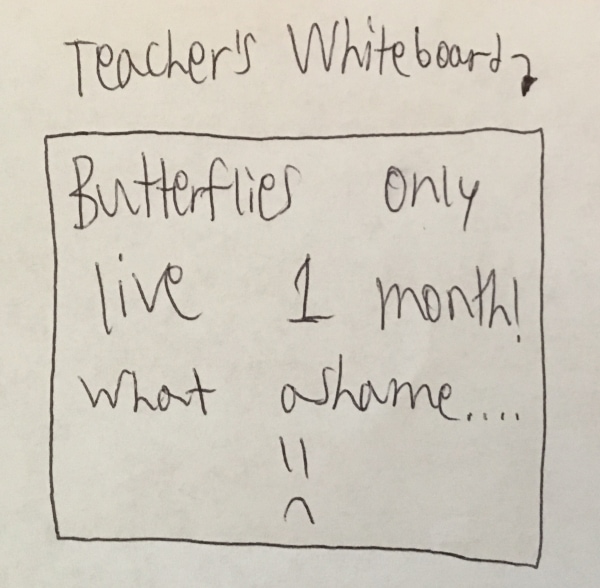 Teacher's Whiteboard
Butterflies only
live 1 month!
what a shame....